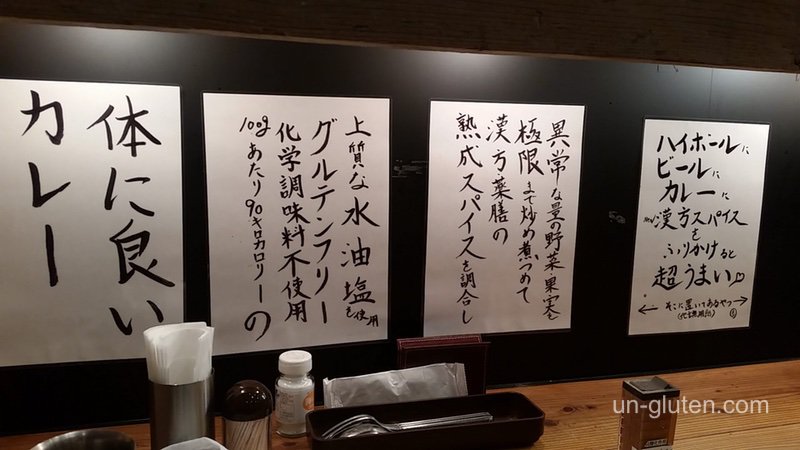 ハイボールに
ビールに
カレーに
漢方スパイス
を
ふりかけると
超うまい♡
← そこに置いてあるやつ →
異常な量の野菜・果実を
極限まで炒め煮つめて
漢方・薬膳の
熟成スパイスを調合し
上質な水油塩を使用
グルテンフリー
化学調味料不使用
100gあたり90キロカロリーの
体に良い
カレー
un-gluten.com